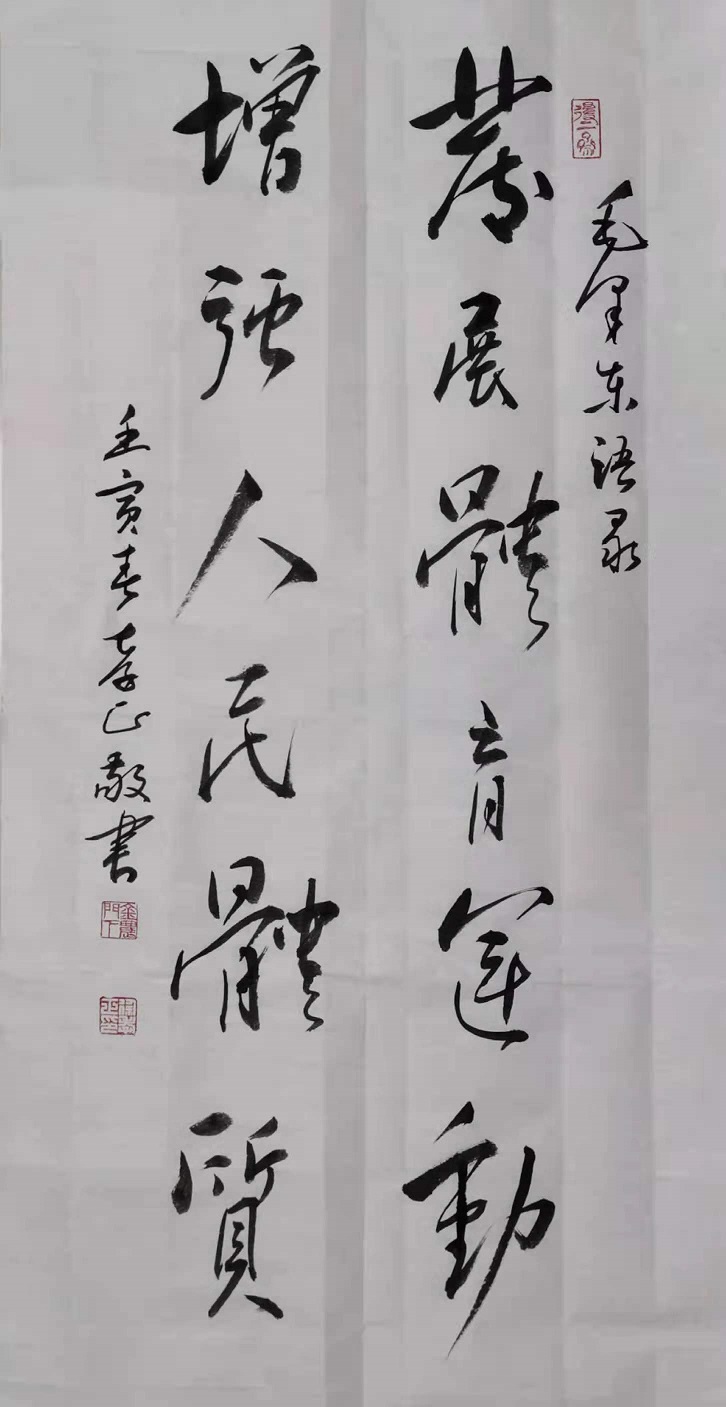 毛澤东语录
發展體育運動
增强人民體質
壬寅春孝正敬書
門下